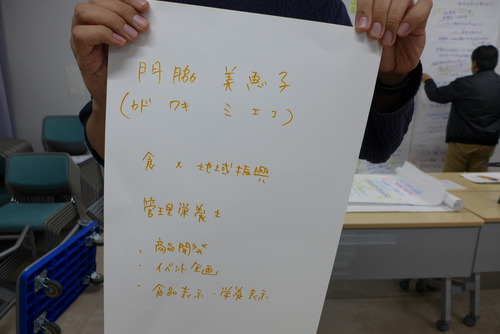 門脇 美恵子
(カド ワキ ミエコ)
食 × 地域振興
管理栄養士
・商品開発
・イベント企画
・食品表示・栄養表示